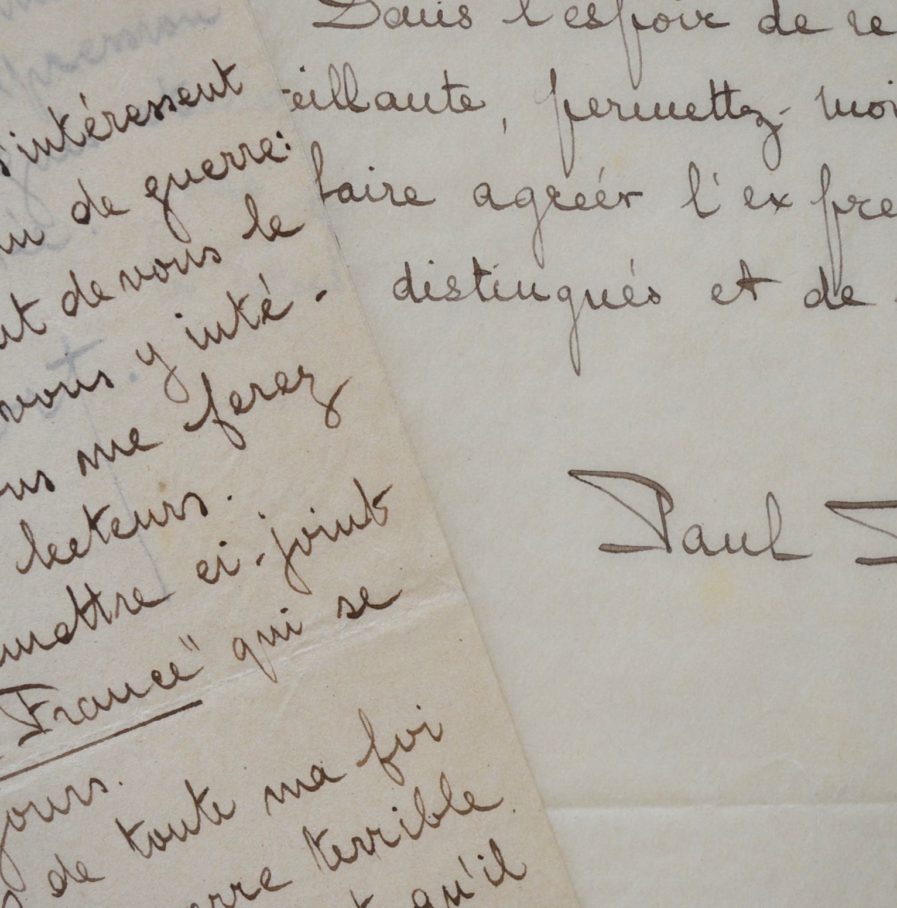 s'intéressent
de guerre:
de vous le
vous y inté-
me ferez
lecteurs.
mettre ci-joint
France" qui se
jours.
de toute ma foi
terrible
qu'il
Dans l'espoir de re
eillante, permettez-moi
faire agréer l'expre
distingués et de
Paul